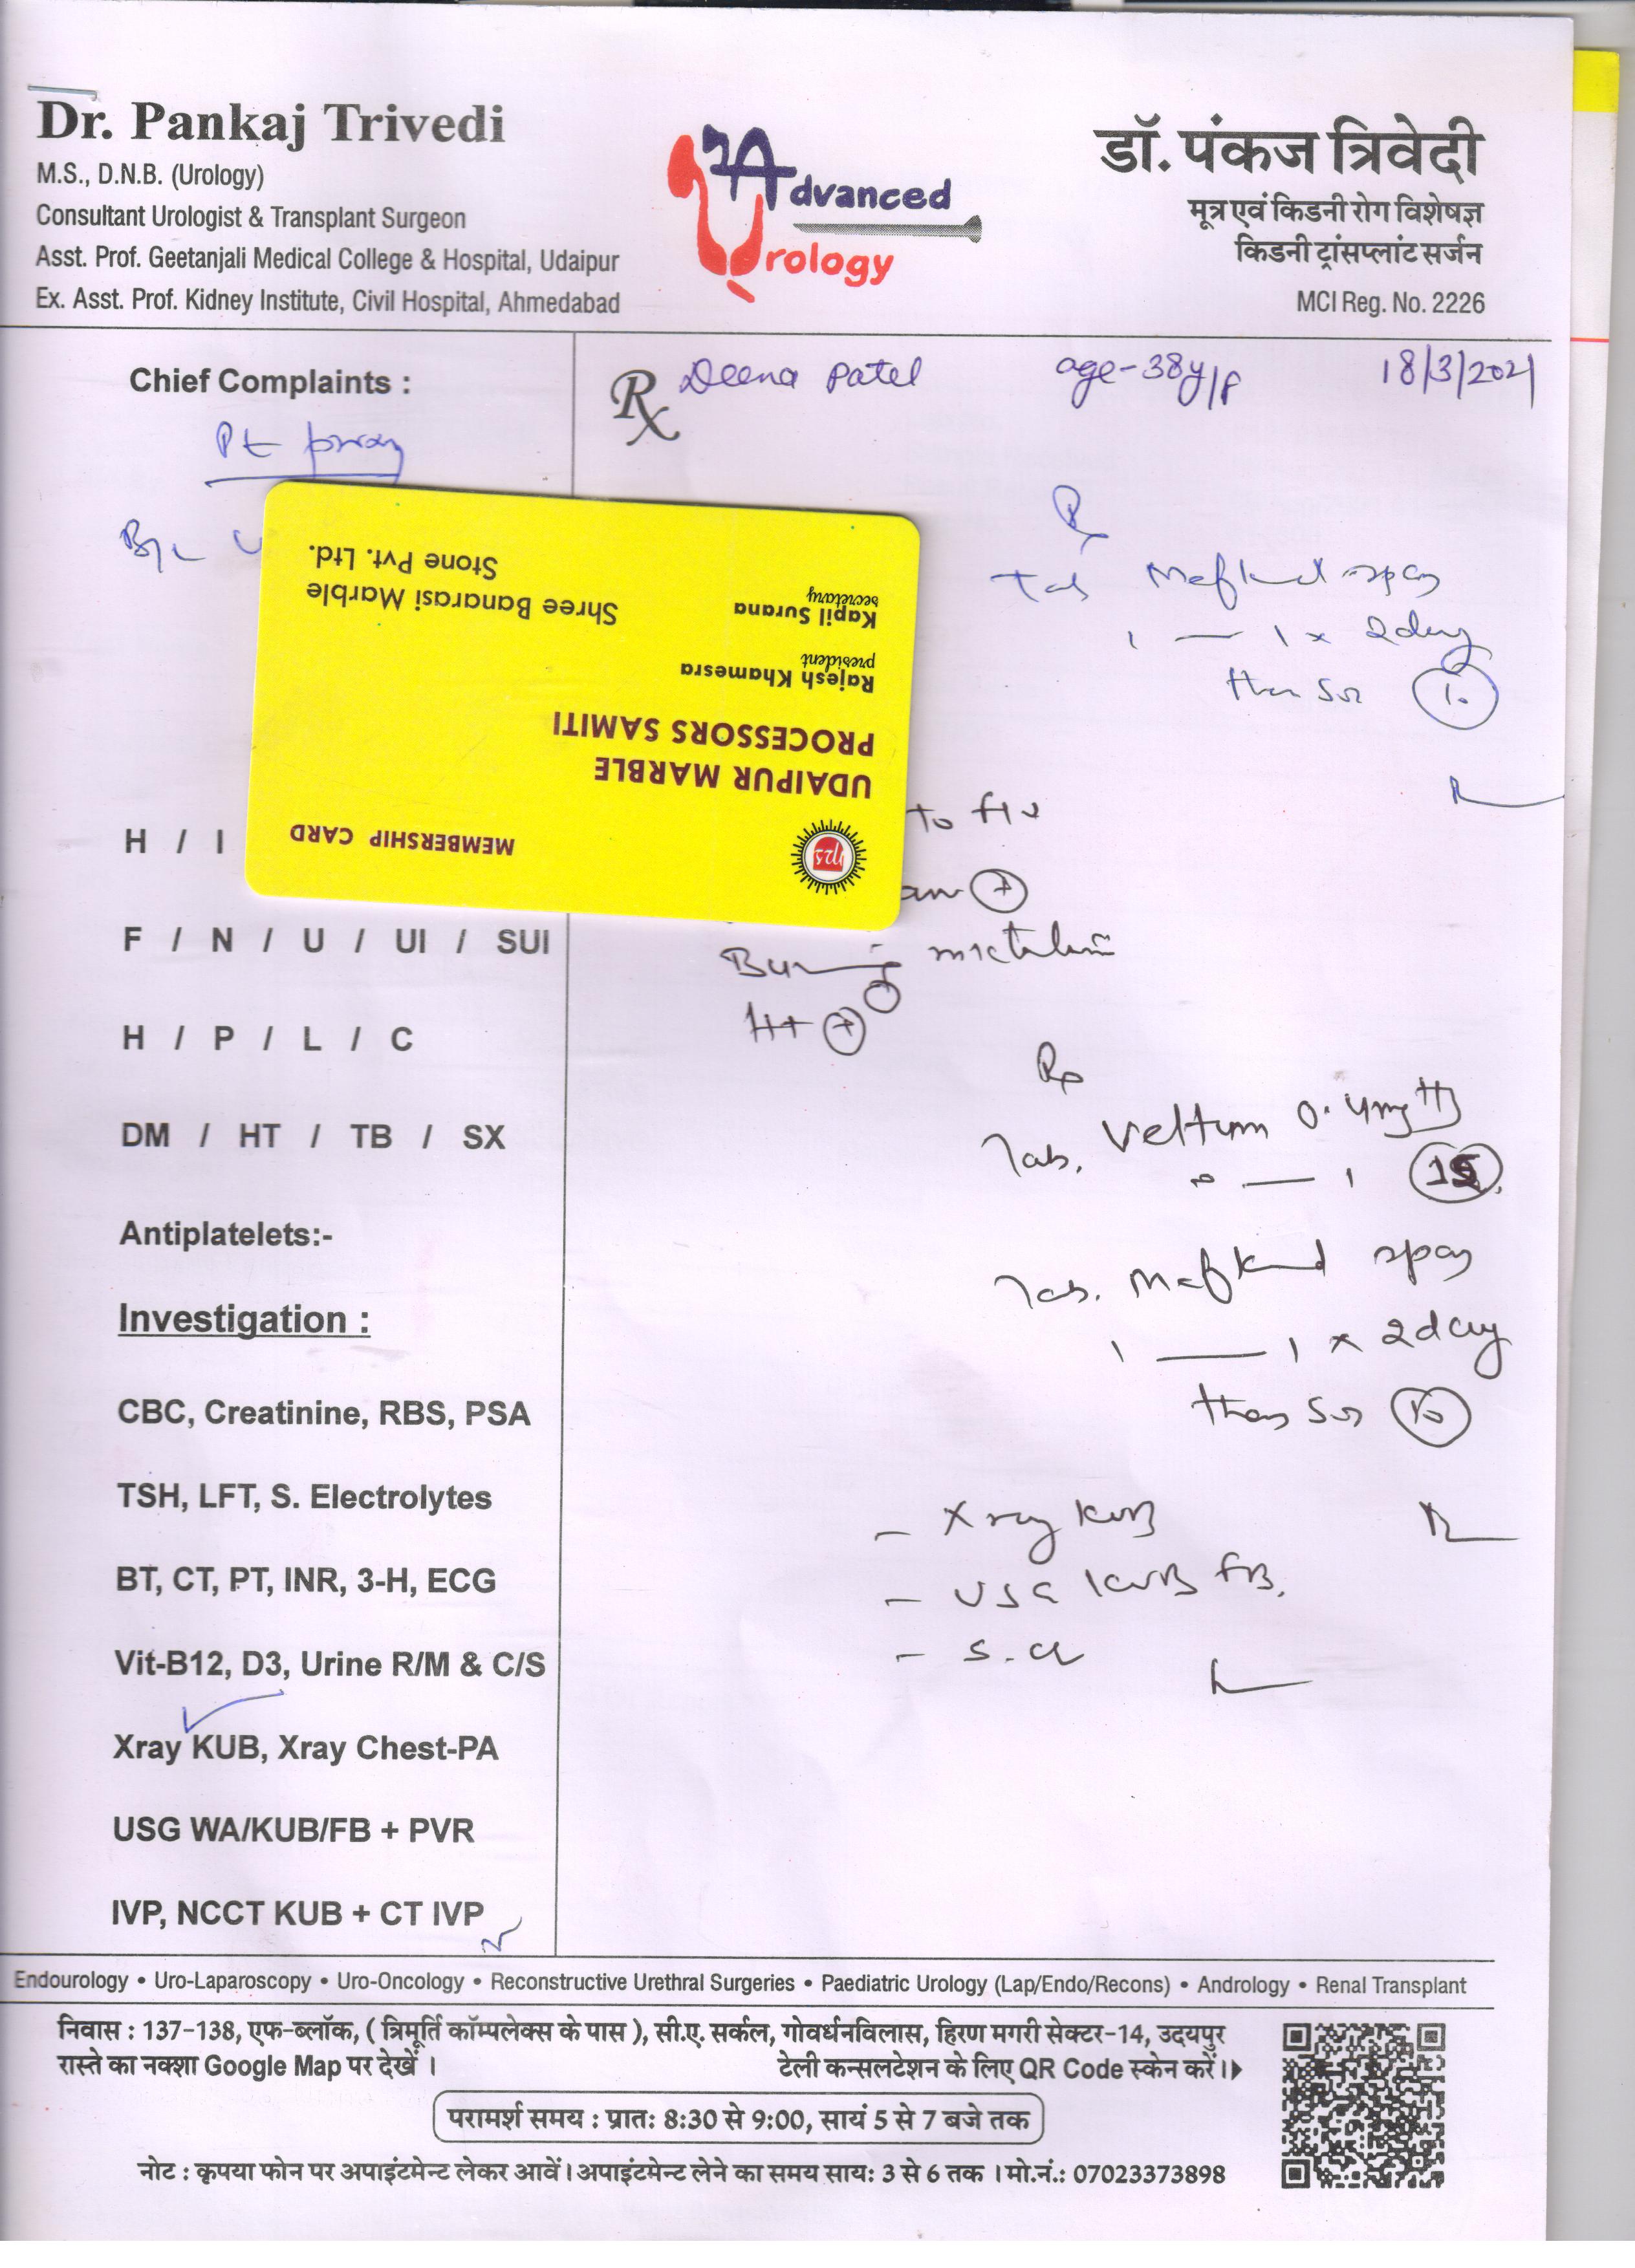 Dr. Pankaj Trivedi
M.S., D.N.B. (Urology)
Consultant Urologist & Transplant Surgeon
Asst. Prof. Geetanjali Medical College & Hospital, Udaipur
Ex. Asst. Prof. Kidney Institute, Civil Hospital, Ahmedabad
Advanced
Urology
डॉ. पंकज त्रिवेदी
मूत्र एवं किडनी रोग विशेषज्ञ
किडनी ट्रांसप्लांट सर्जन
MCI Reg. No. 2226
Chief Complaints :
Rx Deena Patel age-38y/F 18/3/2021
Pt
B/L
Rx
Tab Mefkind spas
1 — 1 x 2day
then sos 10
MEMBERSHIP CARD
UDAIPUR MARBLE
PROCESSORS SAMITI
Rajesh Khamesra
president
Kapil Surana
secretary
Shree Banarasi Marble
Stone Pvt. Ltd.
to
H / I
+
F / N / U / UI / SUI
Burning micturition
HT +
H / P / L / C
Rx
DM / HT / TB / SX
Tab. Veltam 0.4mg
0 — 1 15
Antiplatelets:-
Tab. Mefkind spas
1 — 1 x 2day
then sos 10
Investigation :
CBC, Creatinine, RBS, PSA
TSH, LFT, S. Electrolytes
BT, CT, PT, INR, 3-H, ECG
Vit-B12, D3, Urine R/M & C/S
Xray KUB, Xray Chest-PA
USG WA/KUB/FB + PVR
IVP, NCCT KUB + CT IVP
- Xray KUB
- USG KUB FB.
- S. Cr
Endourology • Uro-Laparoscopy • Uro-Oncology • Reconstructive Urethral Surgeries • Paediatric Urology (Lap/Endo/Recons) • Andrology • Renal Transplant
निवास : 137-138, एफ-ब्लॉक, ( त्रिमूर्ति कॉम्पलेक्स के पास ), सी.ए. सर्कल, गोवर्धनविलास, हिरण मगरी सेक्टर-14, उदयपुर
रास्ते का नक्शा Google Map पर देखें । टेली कन्सलटेशन के लिए QR Code स्केन करें।
परामर्श समय : प्रातः 8:30 से 9:00, सायं 5 से 7 बजे तक
नोट : कृपया फोन पर अपाइंटमेन्ट लेकर आवें। अपाइंटमेन्ट लेने का समय सायः 3 से 6 तक । मो.नं.: 07023373898